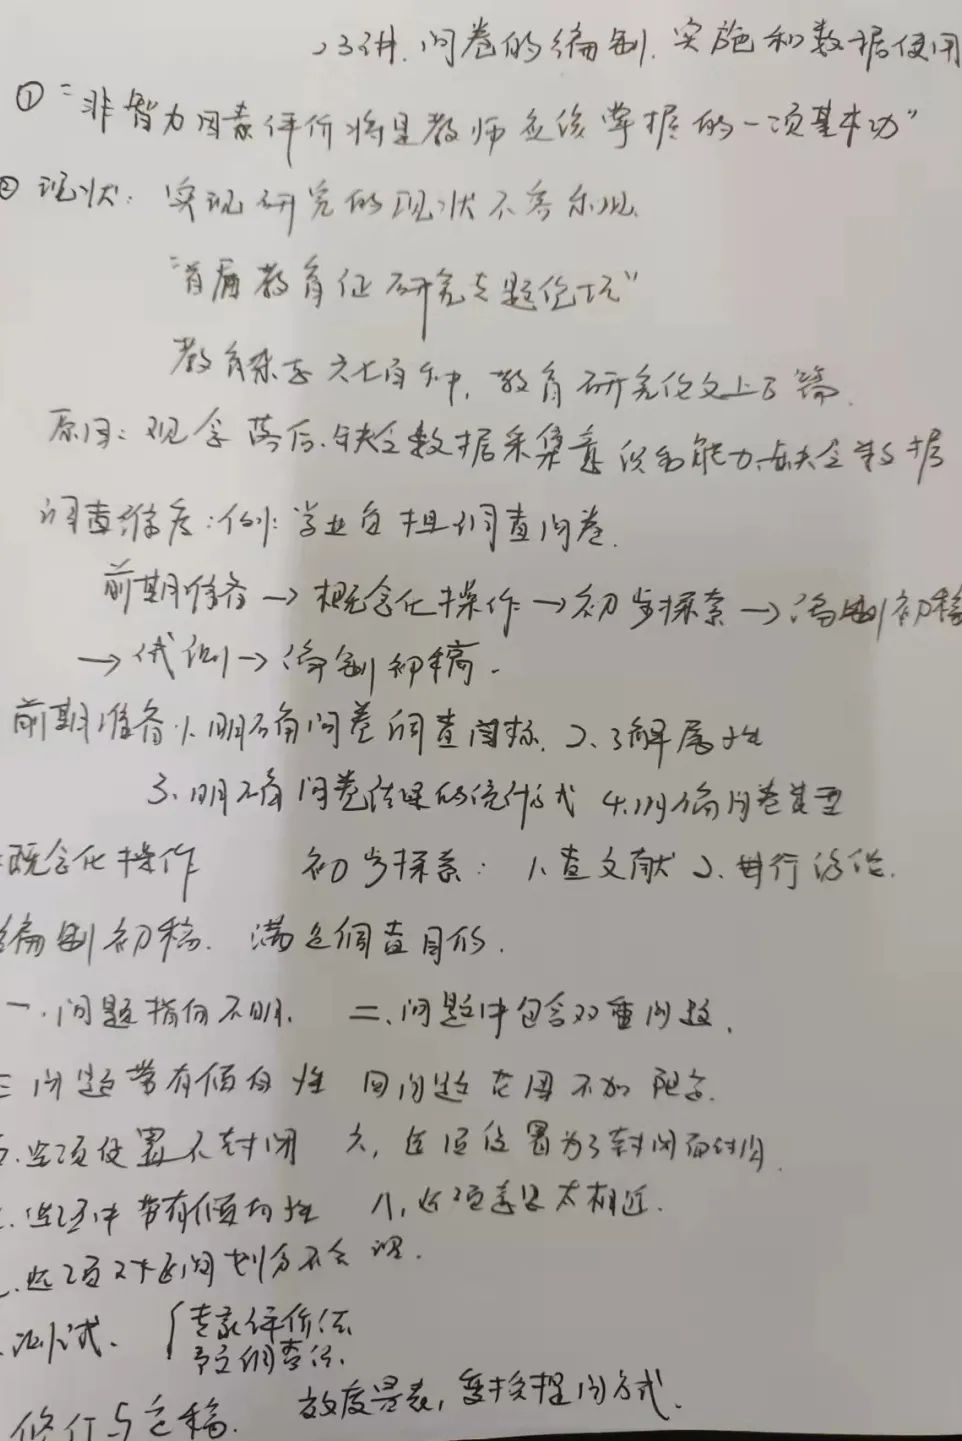 3讲.问卷的编制.实施和数据使用
① "非智力因素评价将是教师应该掌握的一项基本功"
② 现状: 实现研究的现状不容乐观.
教育杂志六七百种, 教育研究论文上万篇.
原因: 观念落后.缺乏数据采集意识和能力.缺乏数据
调查维度:例:学业负担调查问卷.
前期准备→概念化操作→初步探索→编制初稿
→试测→编制初稿.
前期准备.1.明确问卷调查目标. 2.了解属性
3.明确问卷结果的统计方式 4.明确问卷类型
概念化操作 初步探索: 1.查文献 2.进行访谈.
编制初稿. 满足调查目的.
一.问题指向不明. 二.问题中包含双重问题.
三 问题带有倾向性 四问题范围不加限定.
五.选项设置不封闭 六,选项设置为了封闭而封闭.
选项中带有倾向性 八,选项意思太相近.
选项对区间划分不合理.
测试. {专家评价法
预调查法.
修订与定稿. 效度量表,变换提问方式.